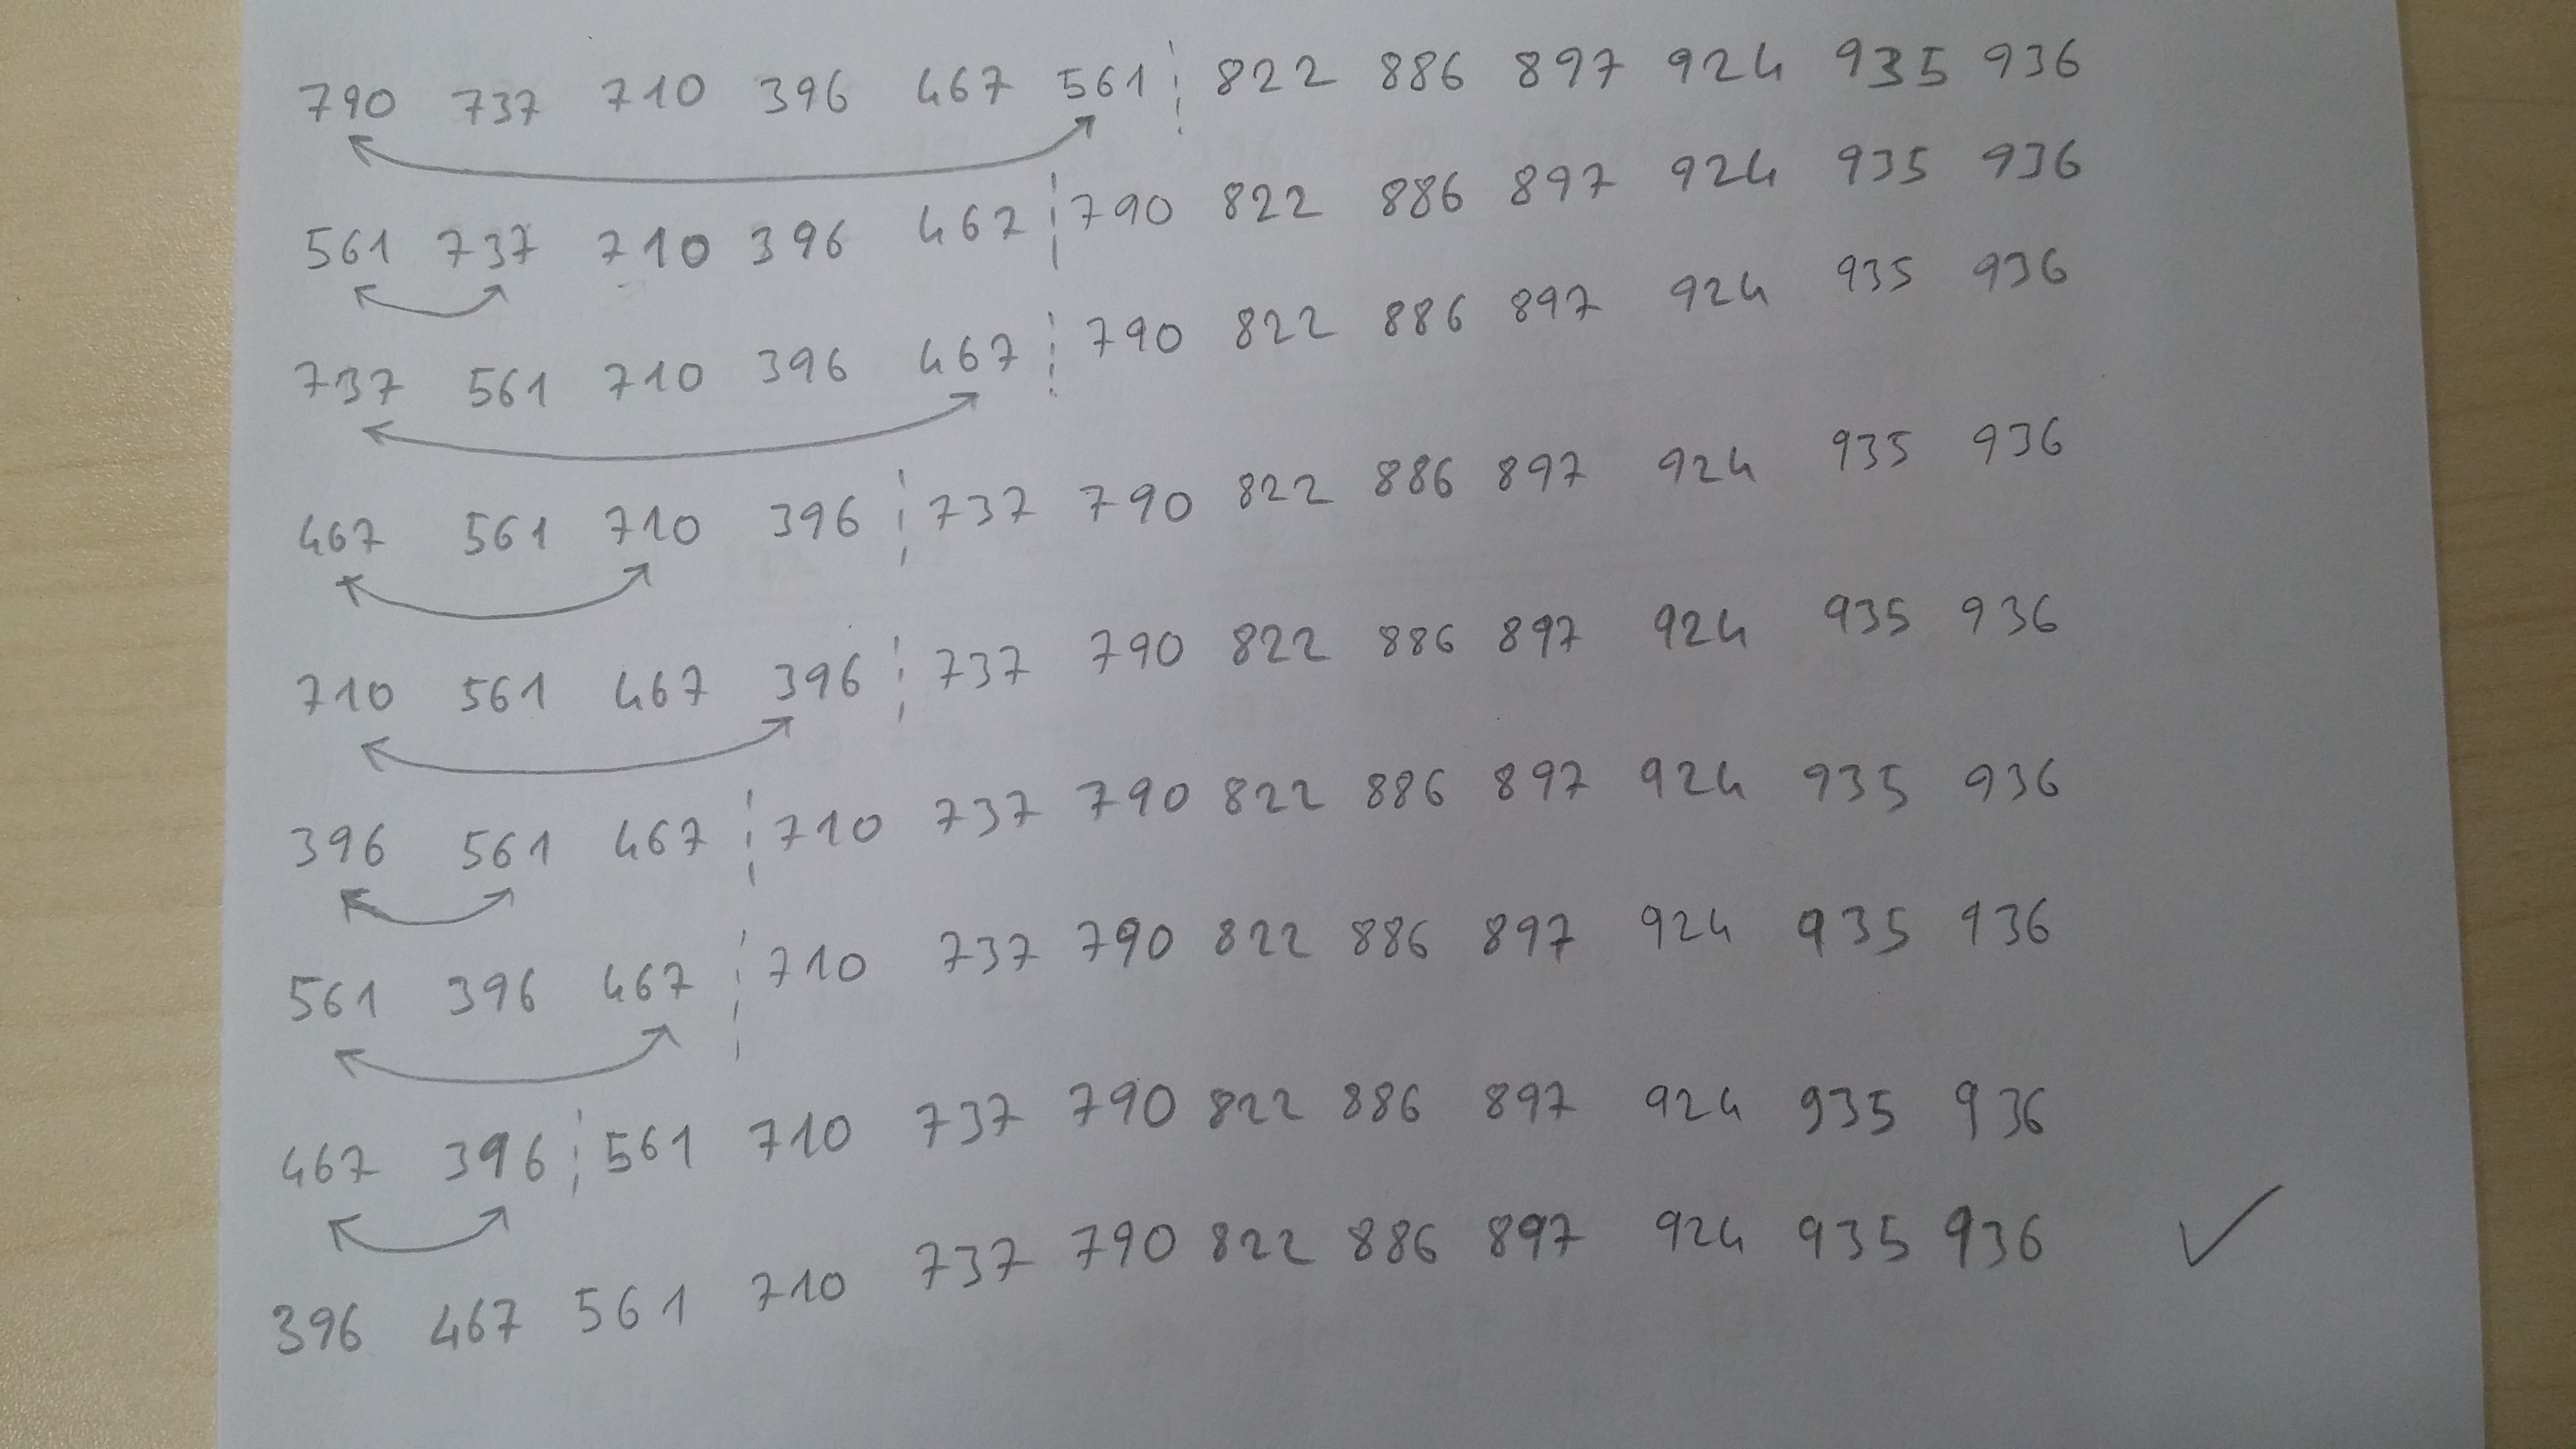 790 737 710 396 467 561 ¦ 822 886 897 924 935 936
561 737 710 396 467 ¦ 790 822 886 897 924 935 936
737 561 710 396 467 ¦ 790 822 886 897 924 935 936
467 561 710 396 ¦ 737 790 822 886 897 924 935 936
710 561 467 396 ¦ 737 790 822 886 897 924 935 936
396 561 467 ¦ 710 737 790 822 886 897 924 935 936
561 396 467 ¦ 710 737 790 822 886 897 924 935 936
467 396 ¦ 561 710 737 790 822 886 897 924 935 936
396 467 561 710 737 790 822 886 897 924 935 936 ✓